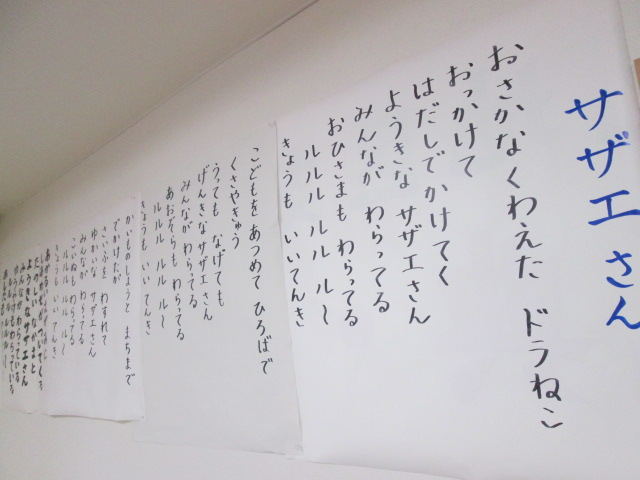 サザエさん
おさかなくわえた ドラねこ
おっかけて
はだしでかけてく
ようきな サザエさん
みんなが わらってる
おひさまも わらってる
ルルル ルル ル〜
きょうも いいてんき
こどもを あつめて ひろばで
くさやきゅう
うっても なげても
げんきなサザエさん
みんなが わらってる
あおぞらも わらってる
ルルル ルル ル〜
きょうも いい てんき
かいものしようと まちまで
でかけたが
さいふを わすれて
ゆかいな サザエさん
みんなが わらってる
こいぬも わらってる
ルルル ルル ル〜
きょうも いい てんき
サザエさん
みんながわらっている